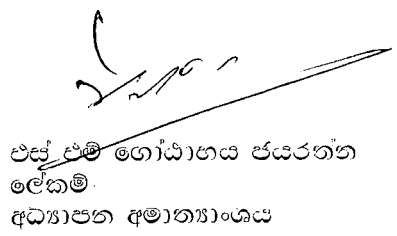 එස් එම් ගෝඨාභය ජයරත්න
ලේකම්
අධ්‍යාපන අමාත්‍යාංශය